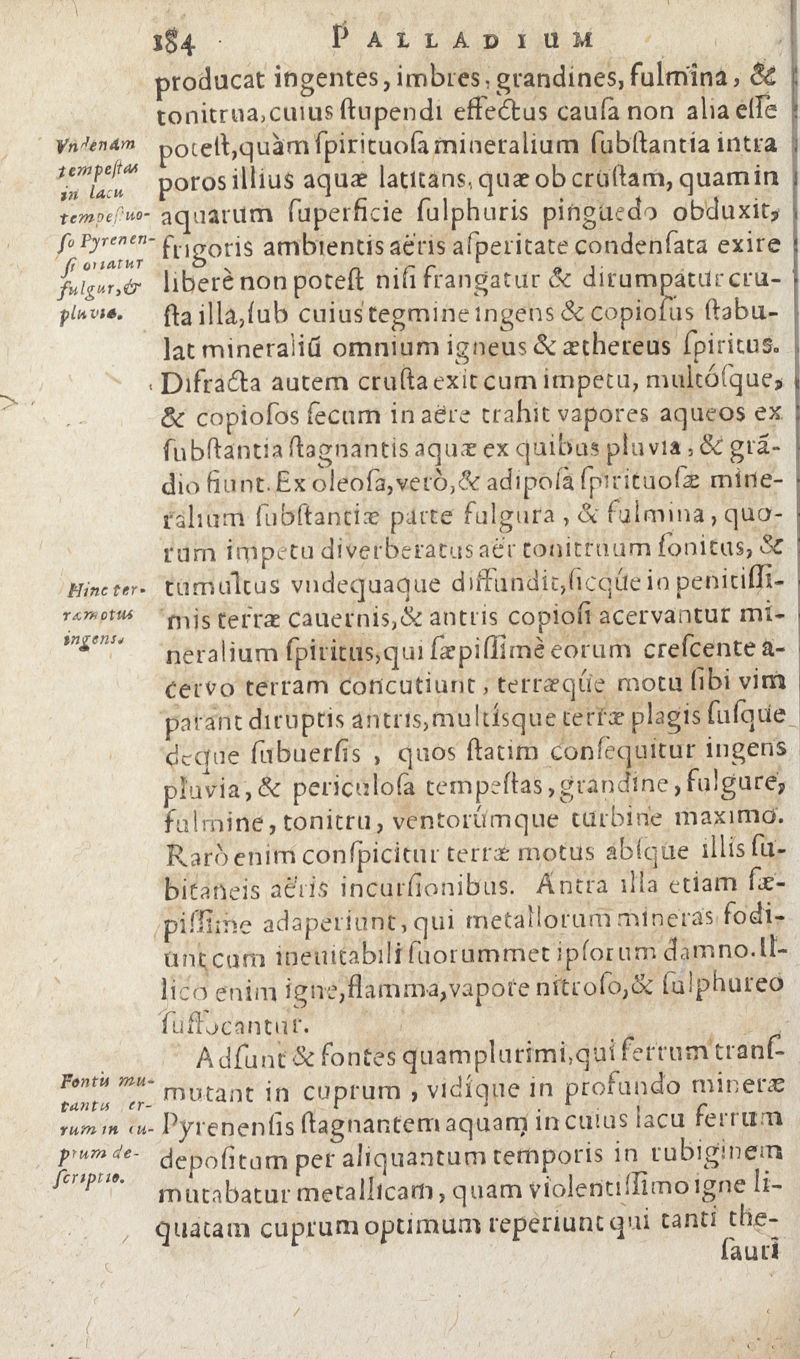 184 PALLADIUM
producat ingentes, imbres, grandines, fulmina, &
tonitrua, cuius ſtupendi effectus cauſa non alia eſſe
poteſt, quàm ſpirituoſa mineralium ſubſtantia intra
poros illius aquæ latitans, quæ ob cruſtam, quam in
aquarum ſuperficie ſulphuris pinguedo obduxit,
frigoris ambientis aëris aſperitate condenſata exire
liberè non poteſt niſi frangatur & dirumpatur cru-
ſta illa, ſub cuius tegmine ingens & copioſus ſtabu-
lat mineraliũ omnium igneus & æthereus ſpiritus.
Difracta autem cruſta exit cum impetu, multóſque,
& copioſos ſecum in aëre trahit vapores aqueos ex
ſubſtantia ſtagnantis aquæ ex quibus pluvia, & grã-
dio fiunt. Ex oleoſa, verò, & adipoſa ſpirituoſæ mine-
ralium ſubſtantiæ parte fulgura, & fulmina, quo-
rum impetu diverberatus aër tonitruum ſonitus, &
tumultus vndequaque diffundit, ſicque in penitiſſi-
mis terræ cauernis, & antris copioſi acervantur mi-
neralium ſpiritus, qui ſæpiſſimè eorum creſcente a-
cervo terram concutiunt, terræque motu ſibi vim
parant diruptis antris, multíſque terræ plagis ſuſque
deque ſubuerſis, quos ſtatim conſequitur ingens
pluvia, & periculoſa tempeſtas, grandine, fulgure,
fulmine, tonitru, ventorúmque turbine maximo.
Rarò enim conſpicitur terræ motus abſque illis ſu-
bitaneis aëris incurſionibus. Antra illa etiam ſæ-
piſſime adaperiunt, qui metallorum mineras fodi-
unt cum ineuitabili ſuorummet ipſorum damno. Il-
lico enim igne, flamma, vapore nitroſo, & ſulphureo
ſuffocantur.
Adſunt & fontes quamplurimi, qui ferrum tranſ-
mutant in cuprum, vidíque in profundo mineræ
Pyrenenſis ſtagnantem aquam in cuius lacu ferrum
depoſitum per aliquantum temporis in rubiginem
mutabatur metallicam, quam violentiſſimo igne li-
quatam cuprum optimum reperiunt qui tanti the-
ſauri
Vndenam
tempeſtas
in lacu
tempeſtuo-
ſo Pyrenen-
ſi oriatur
fulgur, &
pluvia.
Hinc ter-
ræmotus
ingens.
Fontis mu-
tantis er-
rum in cu-
prum de-
ſcriptio.